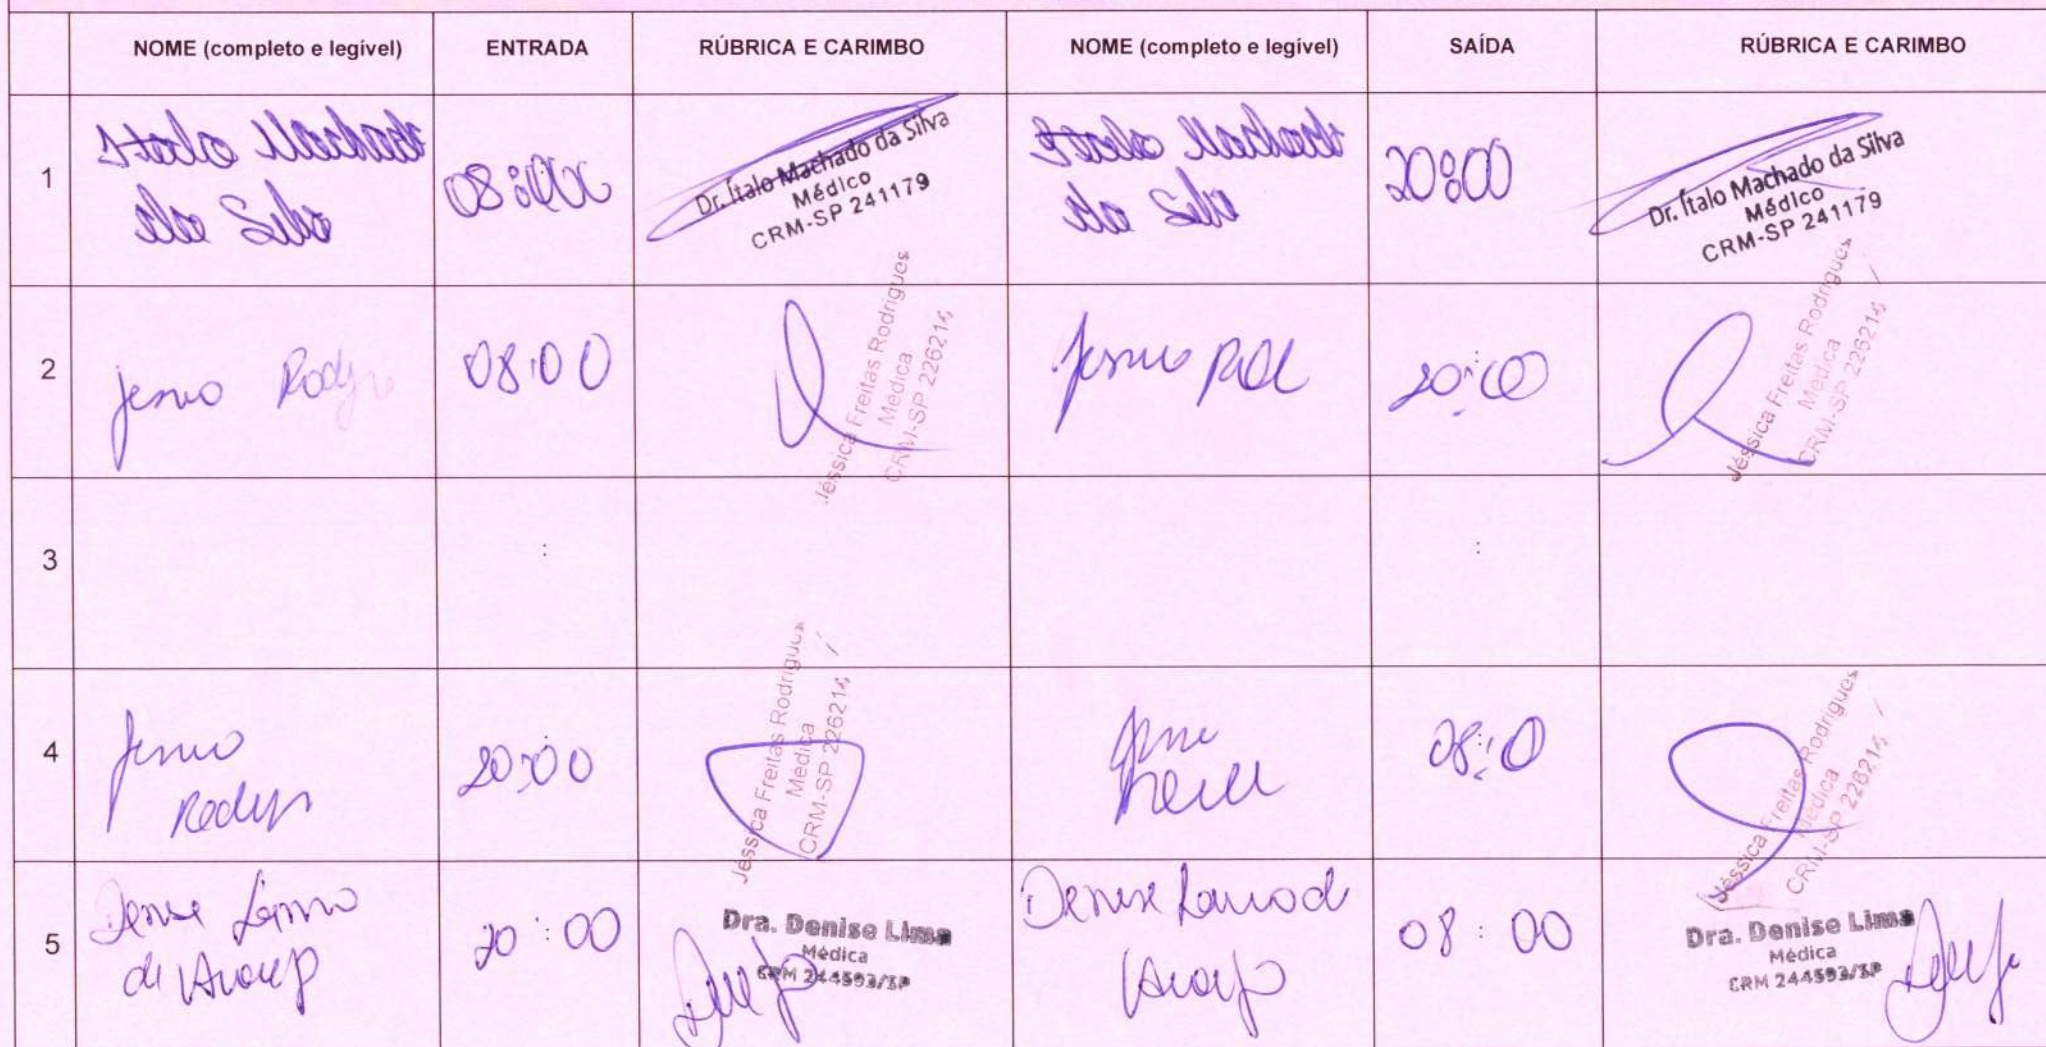 NOME (completo e legível) ENTRADA RÚBRICA E CARIMBO NOME (completo e legível) SAÍDA RÚBRICA E CARIMBO
1
Italo Machado
da Silva
08:00
Dr. Ítalo Machado da Silva
Médico
CRM-SP 241179
Italo Machado
da Silva
20:00
Dr. Ítalo Machado da Silva
Médico
CRM-SP 241179
2
08:00
Jéssica Freitas Rodrigues
Médica
CRM-SP 226214
20:00
Jéssica Freitas Rodrigues
Médica
CRM-SP 226214
3
:
:
4
20:00
Jéssica Freitas Rodrigues
Médica
CRM-SP 226214
Jéssica Freitas Rodrigues
Médica
CRM-SP 226214
5
Denise
de Araujo
20:00
Dra. Denise Lima
Médica
CRM 244593/SP
Denise
Araujo
08:00
Dra. Denise Lima
Médica
CRM 244593/SP